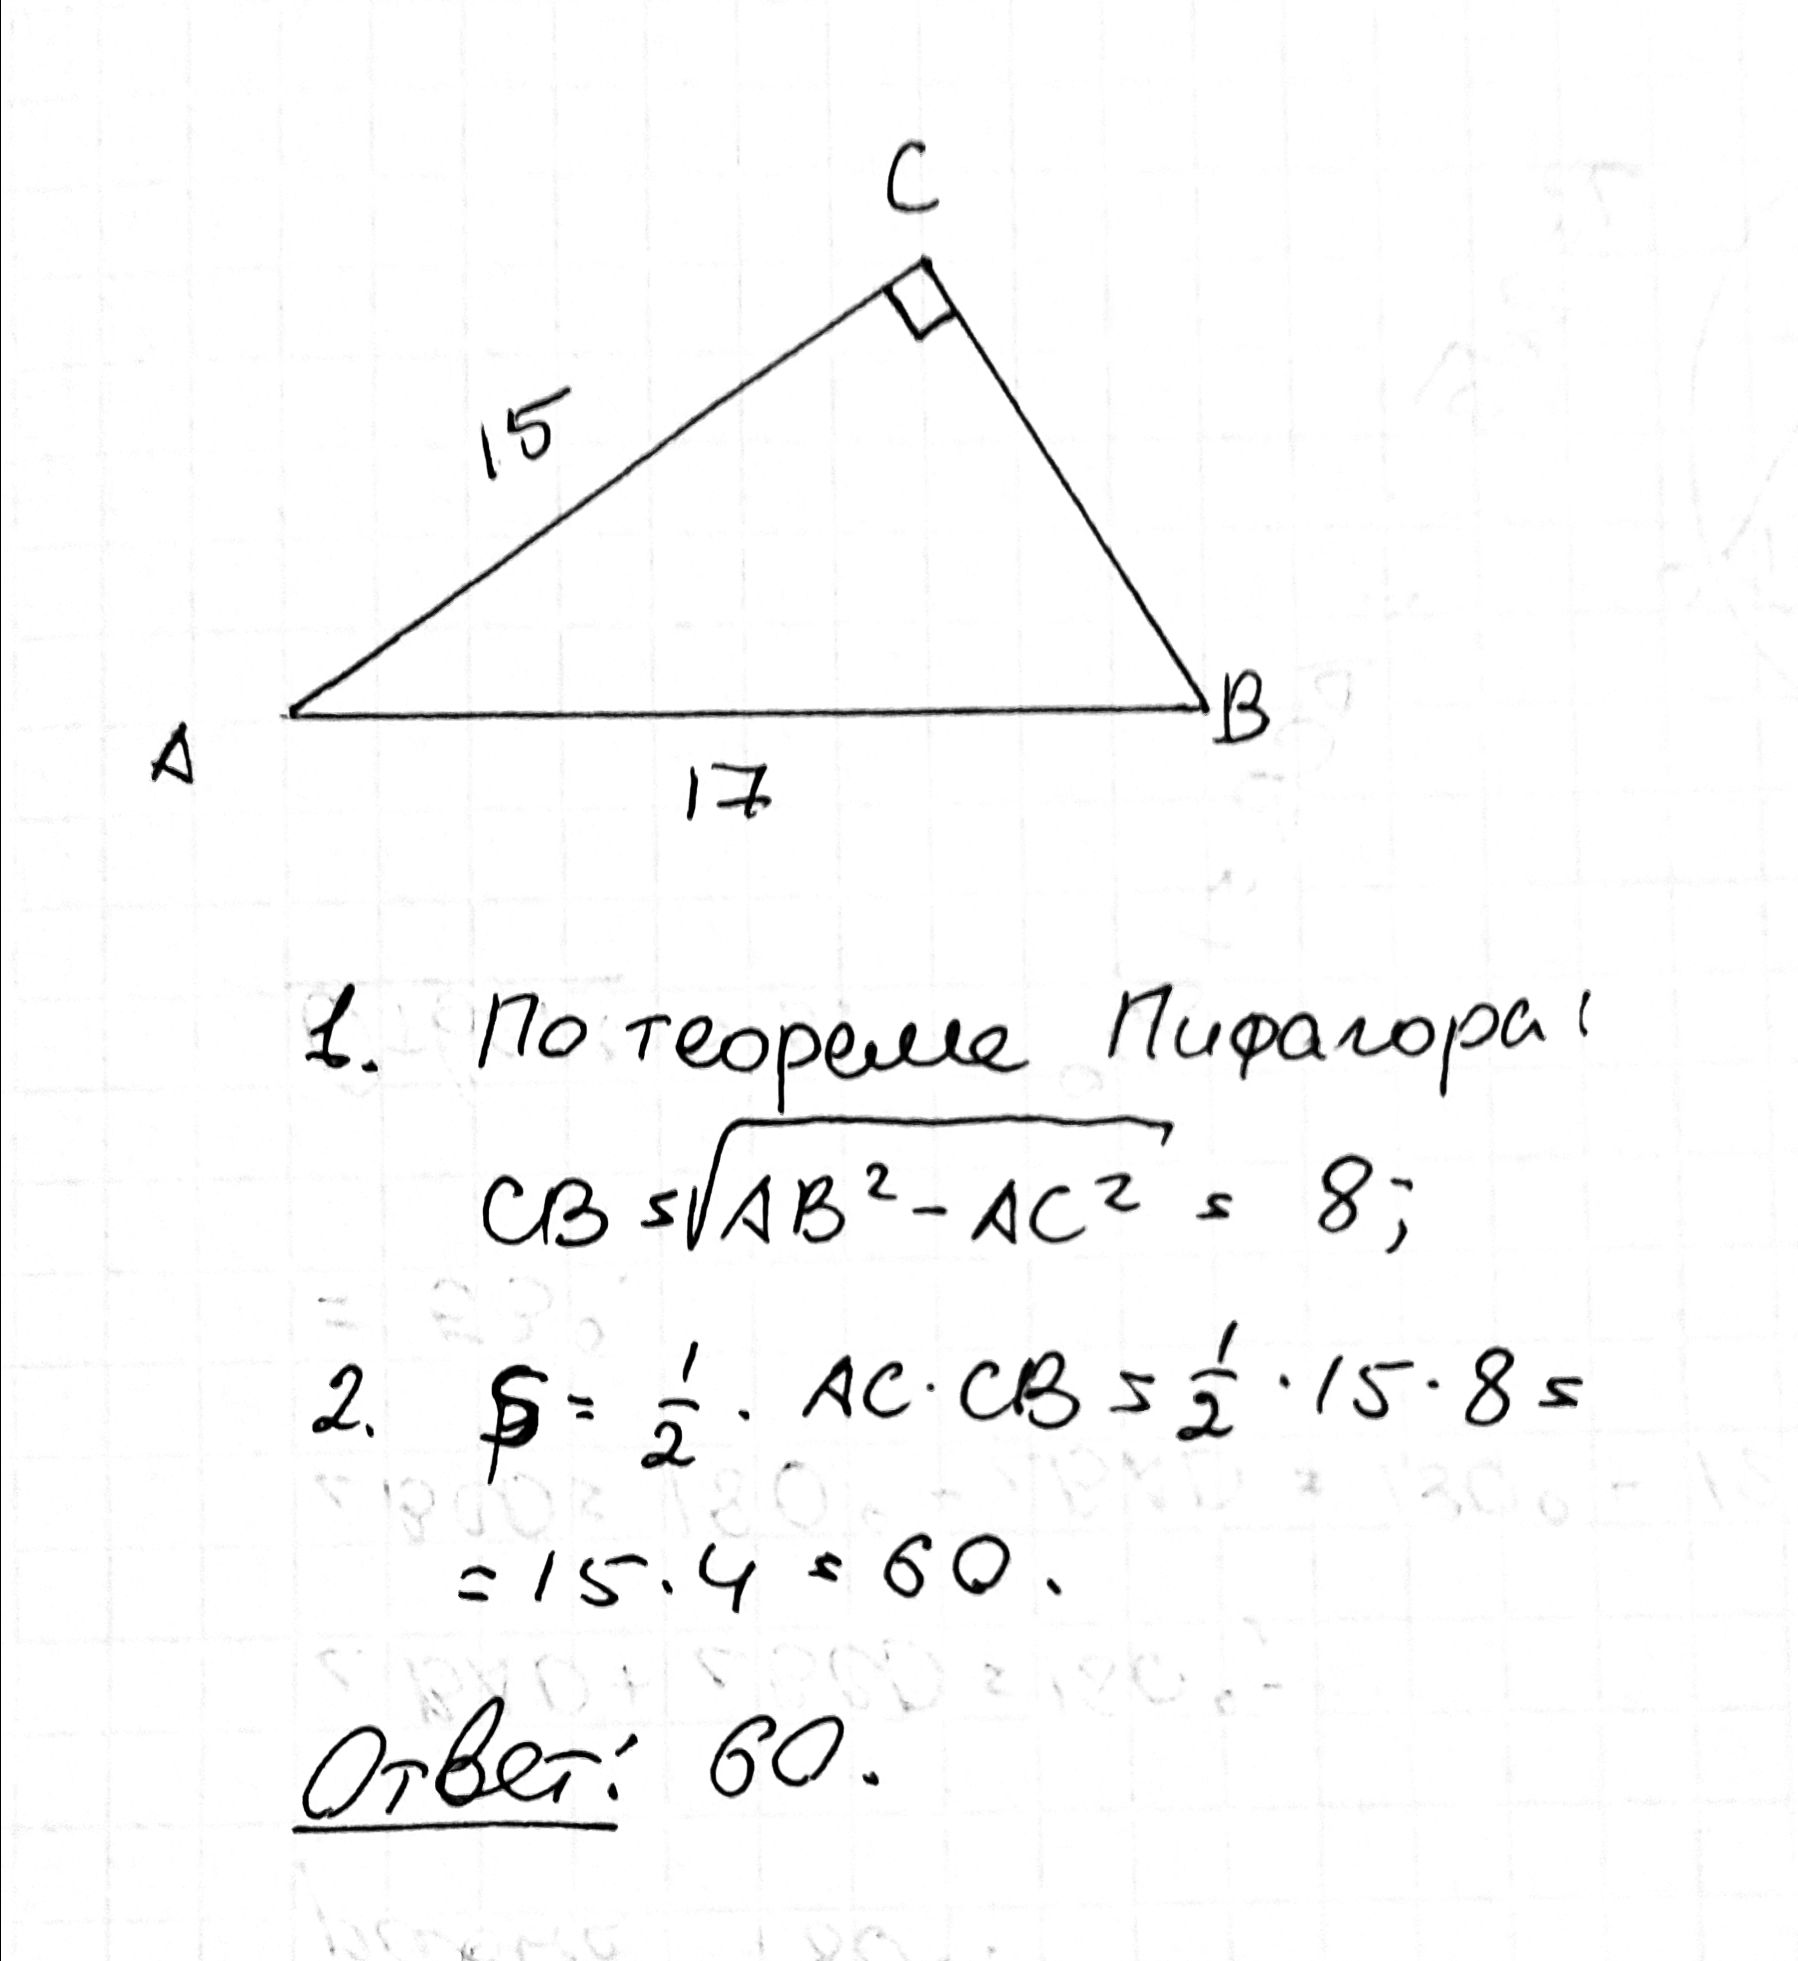 C
15
A
B
17
1. По теореме Пифагора:
CB = √AB² - AC² = 8;
2. S = 1/2 · AC · CB = 1/2 · 15 · 8 =
= 15 · 4 = 60.
Ответ: 60.